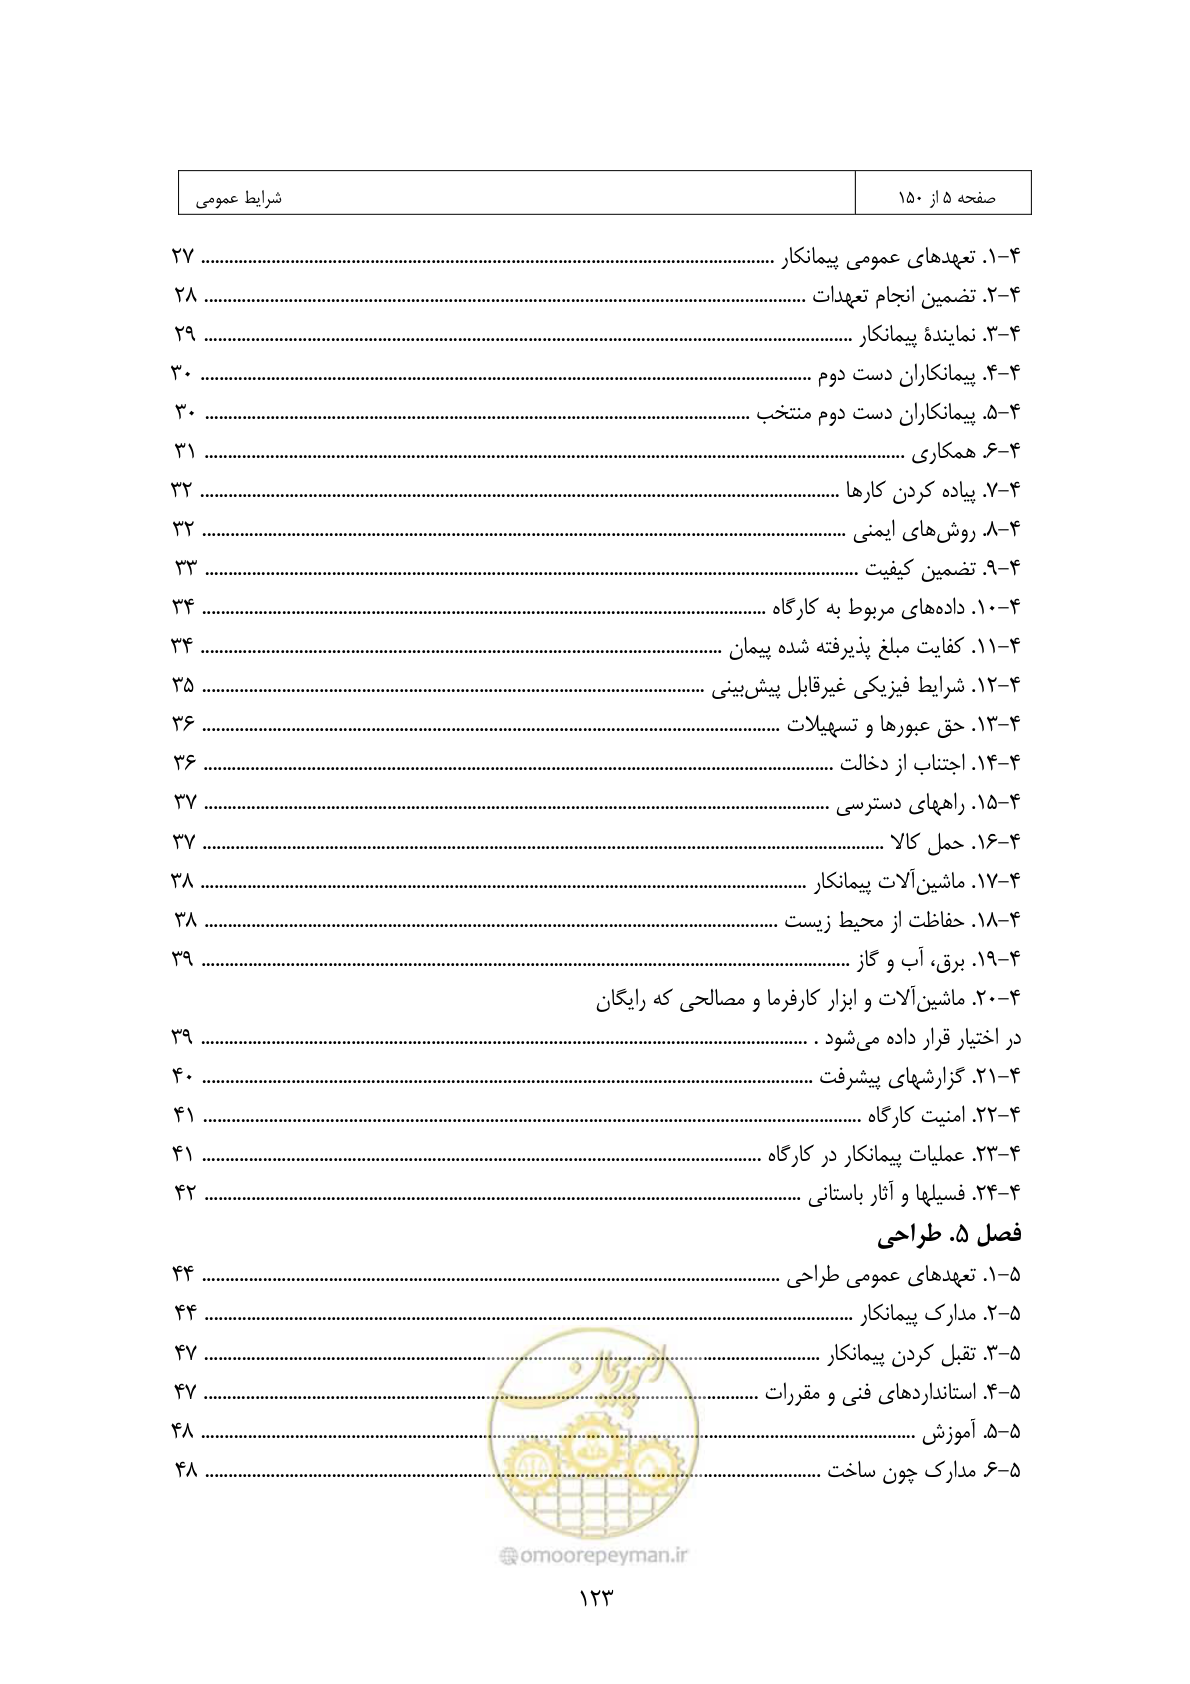 صفحه ۵ از ۱۵۰
شرایط عمومی
۴-۱. تعهدهای عمومی پیمانکار ........ ۲۷
۴-۲. تضمین انجام تعهدات ........ ۲۸
۴-۳. نمایندهٔ پیمانکار ........ ۲۹
۴-۴. پیمانکاران دست دوم ........ ۳۰
۴-۵. پیمانکاران دست دوم منتخب ........ ۳۰
۴-۶. همکاری ........ ۳۱
۴-۷. پیاده کردن کارها ........ ۳۲
۴-۸. روش‌های ایمنی ........ ۳۲
۴-۹. تضمین کیفیت ........ ۳۳
۴-۱۰. داده‌های مربوط به کارگاه ........ ۳۴
۴-۱۱. کفایت مبلغ پذیرفته شده پیمان ........ ۳۴
۴-۱۲. شرایط فیزیکی غیرقابل پیش‌بینی ........ ۳۵
۴-۱۳. حق عبورها و تسهیلات ........ ۳۶
۴-۱۴. اجتناب از دخالت ........ ۳۶
۴-۱۵. راههای دسترسی ........ ۳۷
۴-۱۶. حمل کالا ........ ۳۷
۴-۱۷. ماشین‌آلات پیمانکار ........ ۳۸
۴-۱۸. حفاظت از محیط زیست ........ ۳۸
۴-۱۹. برق، آب و گاز ........ ۳۹
۴-۲۰. ماشین‌آلات و ابزار کارفرما و مصالحی که رایگان
در اختیار قرار داده می‌شود . ........ ۳۹
۴-۲۱. گزارشهای پیشرفت ........ ۴۰
۴-۲۲. امنیت کارگاه ........ ۴۱
۴-۲۳. عملیات پیمانکار در کارگاه ........ ۴۱
۴-۲۴. فسیلها و آثار باستانی ........ ۴۲
فصل ۵. طراحی
۵-۱. تعهدهای عمومی طراحی ........ ۴۴
۵-۲. مدارک پیمانکار ........ ۴۴
۵-۳. تقبل کردن پیمانکار ........ ۴۷
۵-۴. استانداردهای فنی و مقررات ........ ۴۷
۵-۵. آموزش ........ ۴۸
۵-۶. مدارک چون ساخت ........ ۴۸
امور پیمان
@omoorepeyman.ir
۱۲۳